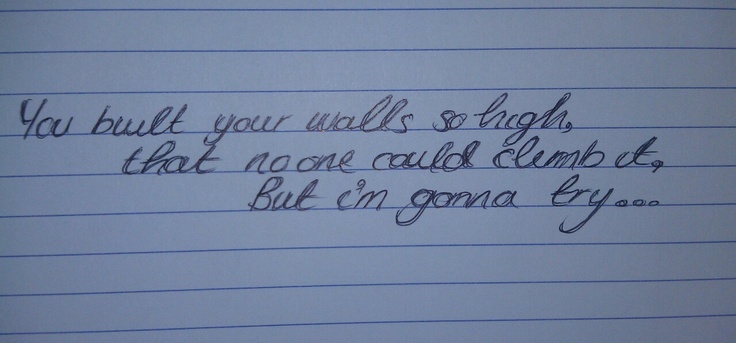 You built your walls so high,
that no one could climb it,
But i'm gonna try...